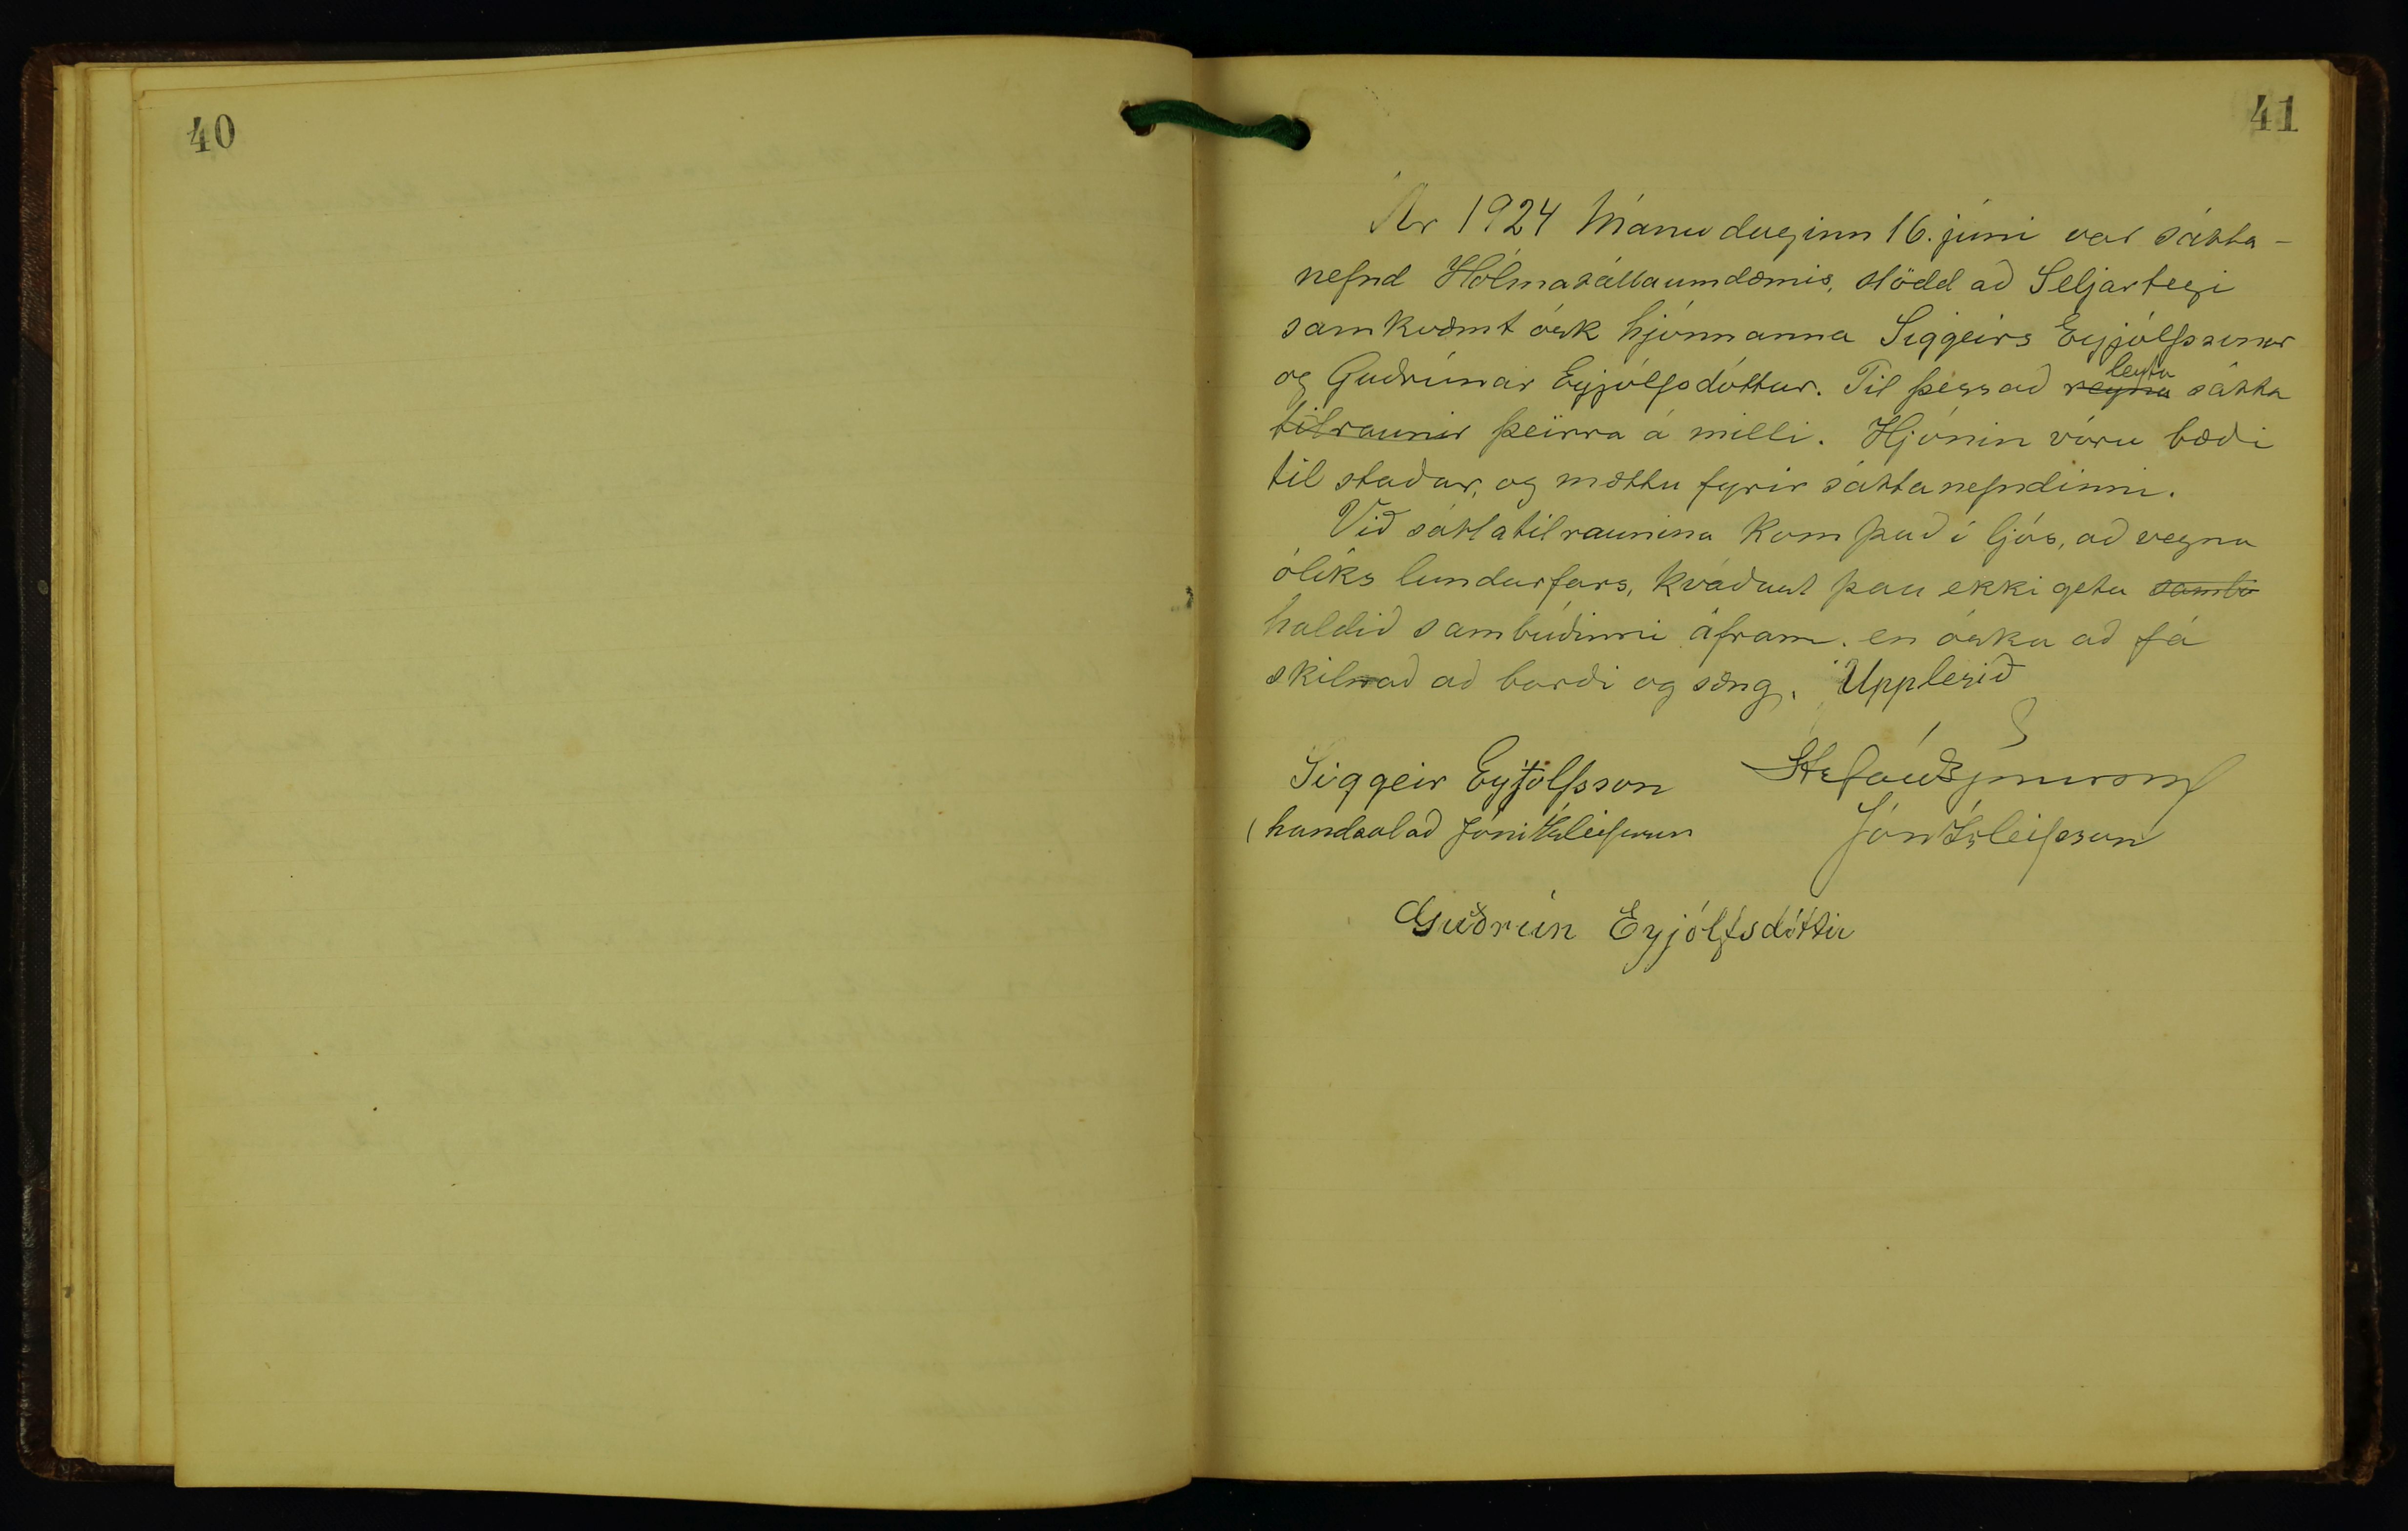 40
41
Ár 1924 Mánudaginn 16. júni var sátta-
nefnd Hólmasáttaumdæmis, stödd að Seljarteigi
samkvæmt ósk hjónnanna Siggeirs Eyjólfssonar
og Guðrúnar Eyjólfsdóttur. Til þess að reyna leyta sátta
tilraunir þeirra á milli. Hjónin vóru bæði
til staðar, og mættu fyrir sáttanefndinni.
Við sáttatilraunina kom það í ljós, að vegna
ólíks lundarfars, kváðust þau ekki geta samb
haldið sambúðinni áfram, en óska að fá
skilnað að borði og sæng. Upplesið
Siggeir Eyjólfsson
(handsalað Jóni Ísleifssyni
Jón Ísleifsson
Guðrún Eyjólfsdóttir